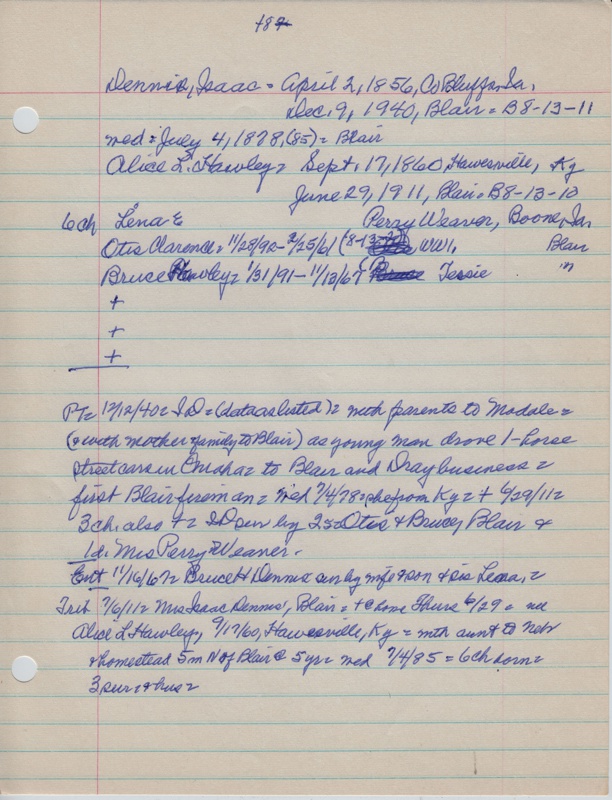 Dennis, Isaac = April 2, 1856, Co Bluffs, Ia,
Dec. 9, 1940, Blair = B8-13-11
wed = July 4, 1878, (85) = Blair
Alice L. Hawley = Sept. 17, 1860, Hawesville, Ky
June 29, 1911, Blair = B8-13-10
6 ch Lena E Perry Weaver, Boone, Ia
Otis Clarence = 11/28/92 - 2/25/61 (8-13- WW1, Blair
Bruce Hawley = 1/31/91 - 11/13/67 Tessie "
+
+
+
PT = 12/12/40 = ID = (data as listed) = with parents to Modale =
(& with mother & family to Blair) as young man drove 1-horse
street cars in Omaha = to Blair and Dray business =
first Blair fireman = wed 7/4/78 = she from Ky = + 6/29/11 =
3 ch. also + = ID sur by 2s = Otis & Bruce, Blair &
1d. Mrs Perry Weaver.
Ent 11/16/67 = Bruce H Dennis = sur by wife & son & sis Lena, =
Trib 7/6/11 = Mrs Isaac Dennis, Blair = + @ home Thurs 6/29 = nee
Alice L Hawley, 9/17/60, Hawesville, Ky = with aunt to Nebr
& homestead 5 m N of Blair @ 5 yrs = wed 7/4/85 = 6 ch born =
3 sur = & hus =